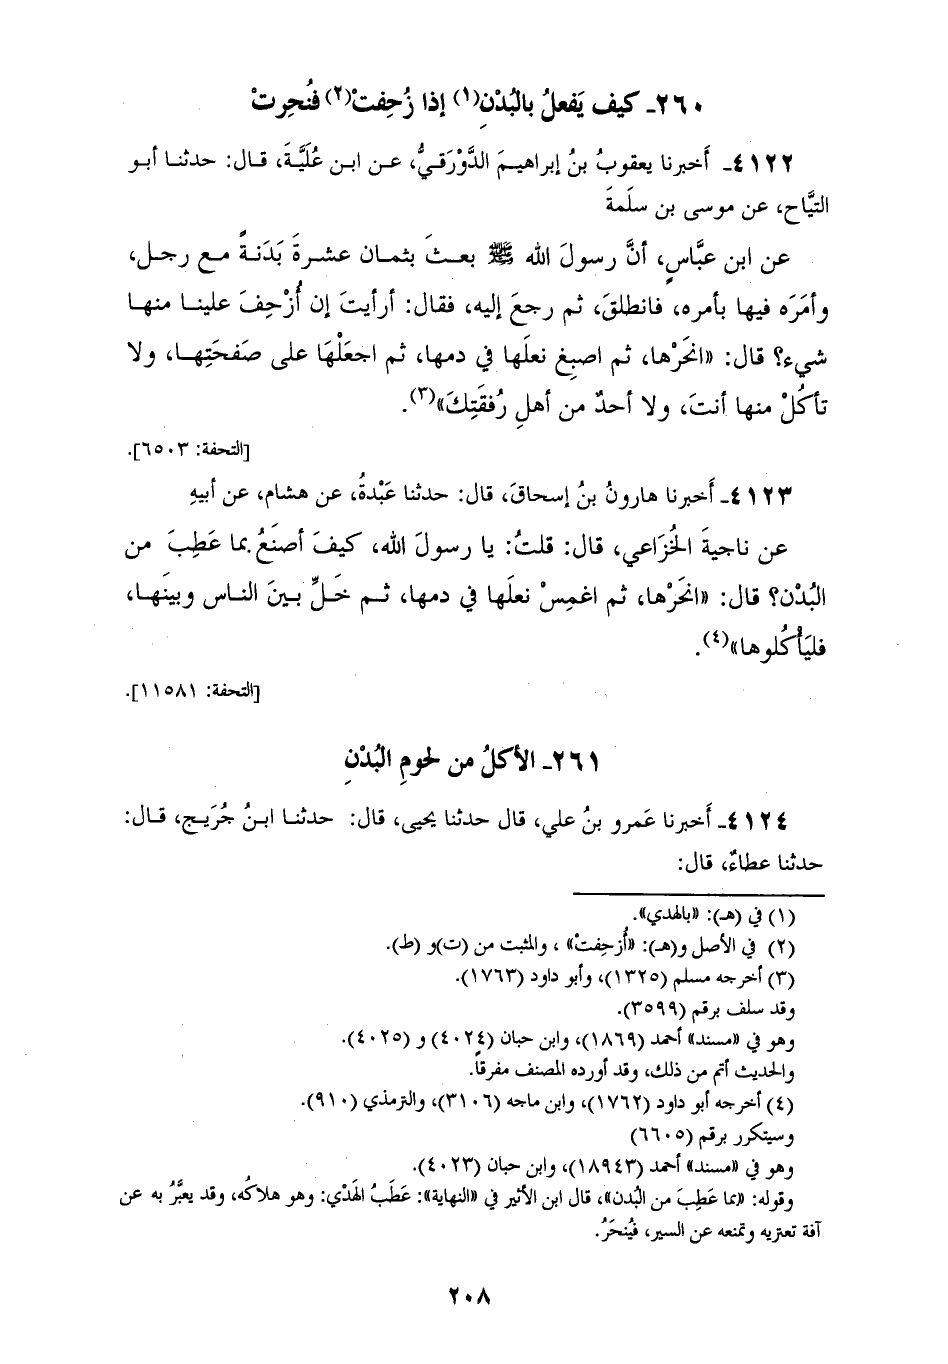 ٢٦٠ـ كيف يَفعلُ بالبُدْنِ(١) إذا زُحِفتْ(٢) فنُحِرتْ
٤١٢٢ـ أَخبرنا يعقوبُ بنُ إبراهيمَ الدَّوْرَقيُّ، عن ابن عُلَيَّةَ، قال: حدثنا أبو
التيَّاح، عن موسى بن سلَمةَ
عن ابن عبَّاسٍ، أنَّ رسولَ الله ﷺ بعثَ بثمان عشرةَ بَدَنةً مع رجل،
وأمَرَه فيها بأمره، فانطلقَ، ثم رجعَ إليه، فقال: أرأيتَ إن أُزْحِفَ علينا منها
شيء؟ قال: «انحَرْها، ثم اصبِغ نعلَها في دمها، ثم اجعَلْهَا على صَفحَتِها، ولا
تأكُلْ منها أنتَ، ولا أحدٌ من أهلِ رُفقَتِكَ»(٣).
[التحفة: ٦٥٠٣].
٤١٢٣ـ أَخبرنا هارونُ بنُ إسحاقَ، قال: حدثنا عَبْدةُ، عن هشام، عن أبيهِ
عن ناجيةَ الخُزاعي، قال: قلتُ: يا رسولَ الله، كيفَ أصنَعُ بما عَطِبَ من
البُدْن؟ قال: «انحَرْها، ثم اغمِسْ نعلَها في دمها، ثم خَلِّ بينَ الناس وبينَها،
فليَأْكُلوها»(٤).
[التحفة: ١١٥٨١].
٢٦١ـ الأكلُ من لحومِ البُدْنِ
٤١٢٤ـ أَخبرنا عَمرو بنُ علي، قال حدثنا يحيى، قال: حدثنا ابنُ جُرَيج، قال:
حدثنا عطاءٌ، قال:
(١) في (هـ): «بالهدي».
(٢) في الأصل و(هـ): «أُزحِفتْ» ، والمثبت من (ت)و (ط).
(٣) أخرجه مسلم (١٣٢٥)، وأبو داود (١٧٦٣).
وقد سلف برقم (٣٥٩٩).
وهو في «مسند» أحمد (١٨٦٩)، وابن حبان (٤٠٢٤) و (٤٠٢٥).
والحديث أتم من ذلك، وقد أورده المصنف مفرقاً.
(٤) أخرجه أبو داود (١٧٦٢)، وابن ماجه (٣١٠٦)، والترمذي (٩١٠).
وسيتكرر برقم (٦٦٠٥)
وهو في «مسند» أحمد (١٨٩٤٣)، وابن حبان (٤٠٢٣).
وقوله: «بما عَطِبَ من البُدن»، قال ابن الأثير في «النهاية»: عَطَبُ الهَدْي: وهو هلاكُه، وقد يعبَّرُ به عن
آفة تعتريه وتمنعه عن السير، فيُنحَرُ.
٢٠٨